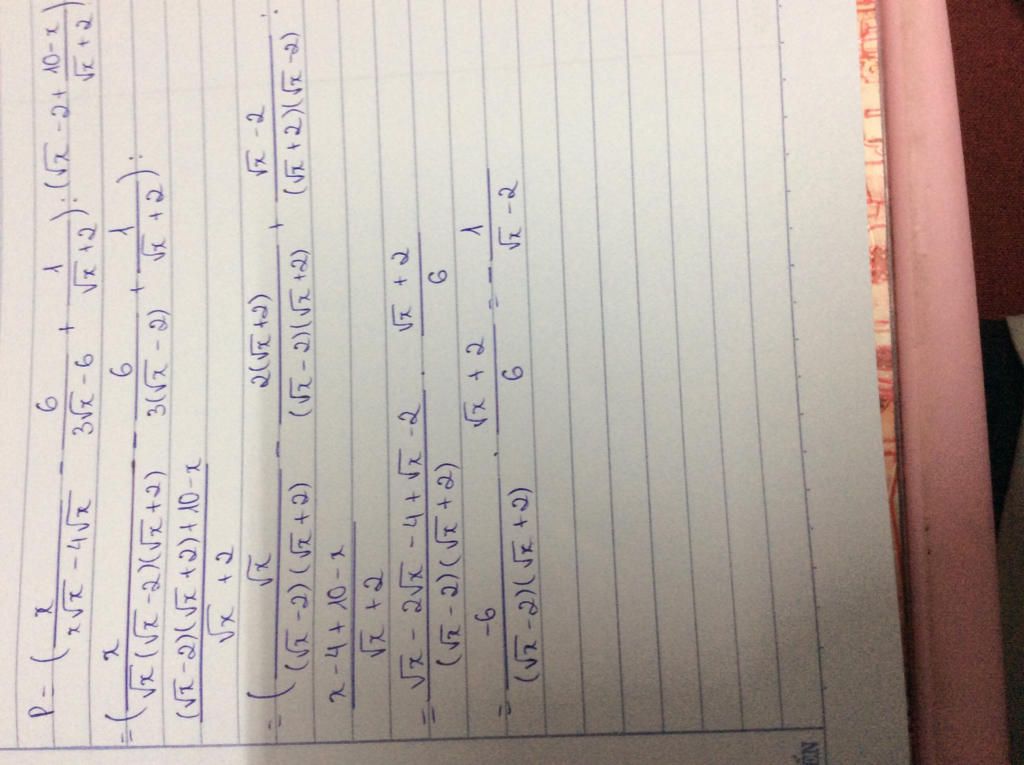 P = ( x / (x√x - 4√x) - 6 / (3√x - 6) + 1 / (√x + 2) ) : (√x - 2 + (10 - x) / (√x + 2) )
= ( x / (√x(√x - 2)(√x + 2)) - 6 / (3(√x - 2)) + 1 / (√x + 2) ) :
((√x - 2)(√x + 2) + 10 - x) / (√x + 2)
= ( √x / ((√x - 2)(√x + 2)) - 2(√x + 2) / ((√x - 2)(√x + 2)) + (√x - 2) / ((√x + 2)(√x - 2)) :
(x - 4 + 10 - x) / (√x + 2)
= (√x - 2√x - 4 + √x - 2) / ((√x - 2)(√x + 2)) . (√x + 2) / 6
= -6 / ((√x - 2)(√x + 2)) . (√x + 2) / 6 = - 1 / (√x - 2)
ẾN